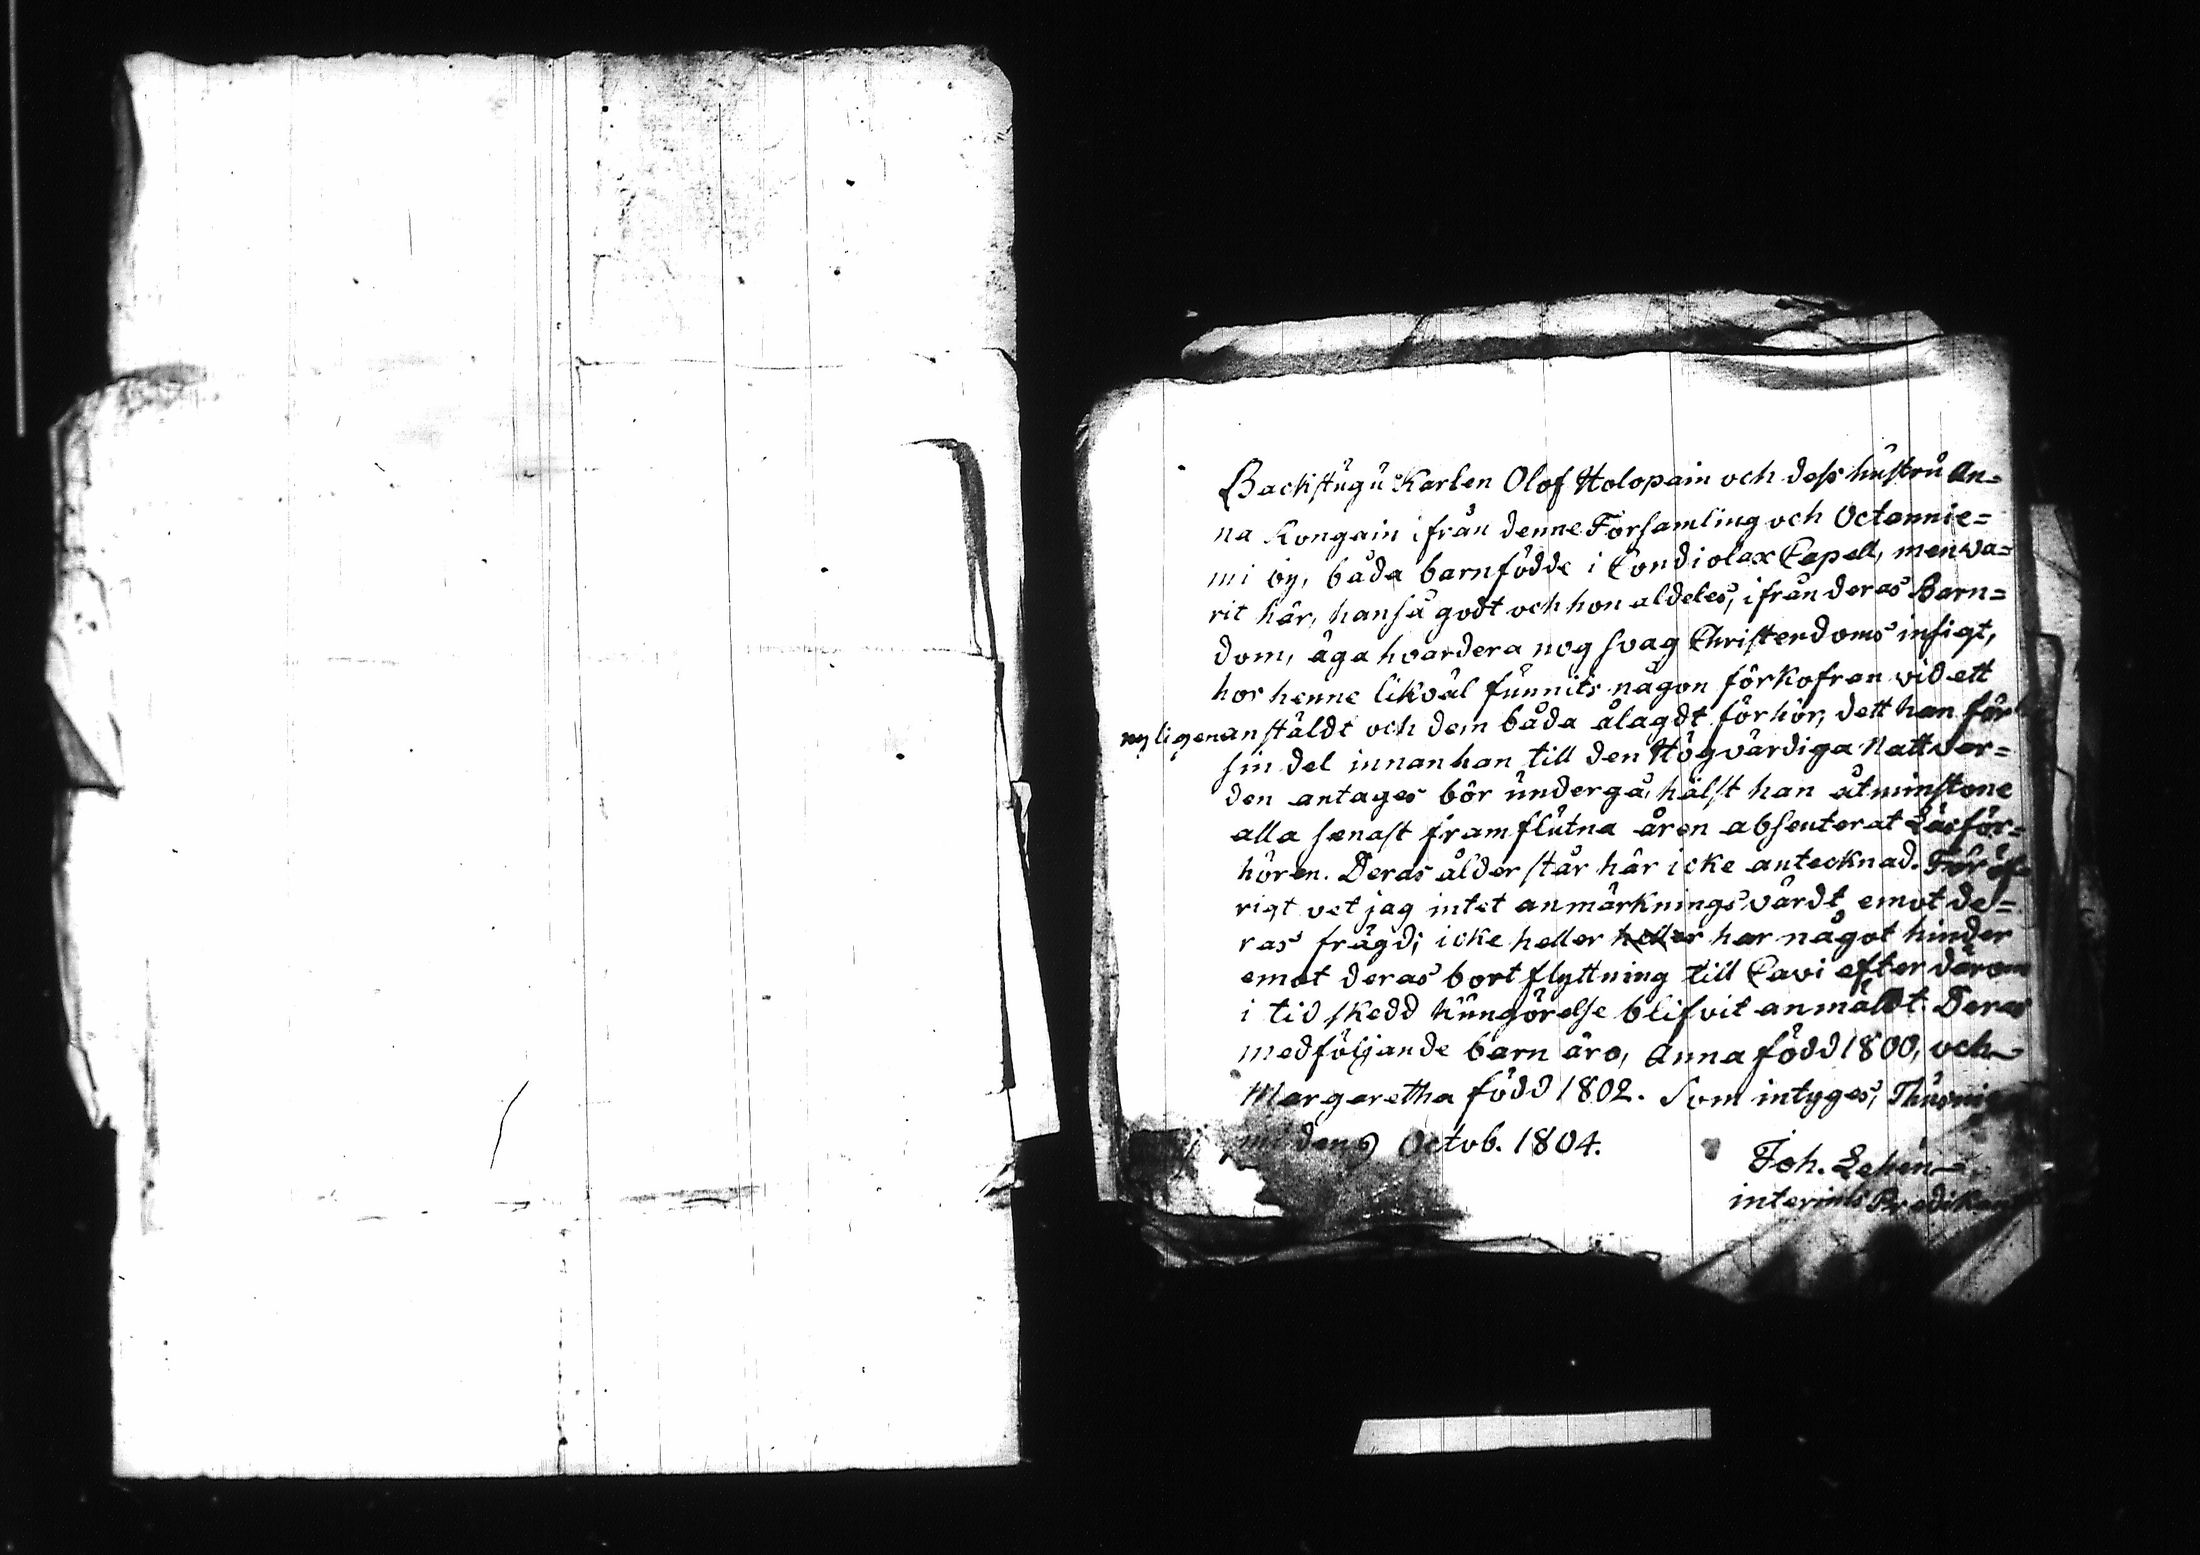 Backstugu Karlen Olof Holopain och dess hustru An=
na Kongain ifrån denne Forsamling och Octannie=
mi by, båda barnfödde i Condiolax Capell, men wa=
rit här, han så godt och hon aldeles, ifrån deras Barn=
dom, äga hvardera nog svag Christendoms insigt,
hos henne likväl funnits någon förkofran vid ett
nyligen anstäldt och dem båda ålagdt förhör, dett han för
sin del innan han till den Högvärdiga Nattvar=
den antages bör undergå, hälst han åtminstone
alla senast framflutna åren absenterat Läsför=
hören. Deras ålder står här icke antecknad. För öf=
rigt vet jag intet anmärkningsvärdt emot de=
ras frägd; icke heller heller har något hinder
emot deras bortflyttning till Cavi efter därom
i tid skedd kungörelse blifvit anmäldt. Deras
medföljande barn äro, Anna född 1800, och
Margaretha född 1802. Som intyges,
mi den 9 Octob. 1804.
Joh.
interims Predikan